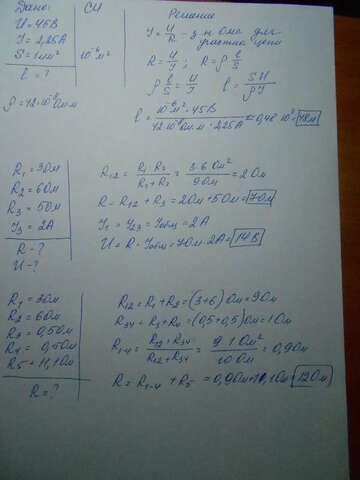 Дано: СИ Решение
U = 45В
I = 2,25А
S = 1мм² 10⁻⁶м²
l = ?
I = U/R = з-н Ома для участка цепи
R = U/I; R = ρ l/S
ρ l/S = U/I l = SU/ρI
ρ = 42·10⁻⁸Ом·м
l = 10⁻⁶м²·45В / 42·10⁻⁸Ом·м·2,25А = 0,48·10² = 48м
R₁ = 3Ом
R₂ = 6Ом
R₃ = 5Ом
I₃ = 2А
R - ?
U - ?
R₁₂ = R₁·R₂ / R₁+R₂ = 3·6 Ом² / 9Ом = 2Ом
R = R₁₂ + R₃ = 2Ом + 5Ом = 7Ом
I₁ = I₂₃ = Iобщ = 2А
U = R·Iобщ = 7Ом·2А = 14В
R₁ = 3Ом
R₂ = 6Ом
R₃ = 0,5Ом
R₄ = 0,5Ом
R₅ = 11,1Ом
R = ?
R₁₂ = R₁ + R₂ = (3+6)Ом = 9Ом
R₃₄ = R₃ + R₄ = (0,5+0,5)Ом = 1Ом
R₁₋₄ = R₁₂·R₃₄ / R₁₂+R₃₄ = 9·1Ом² / 10Ом = 0,9Ом
R = R₁₋₄ + R₅ = 0,9Ом + 11,1Ом = 12Ом